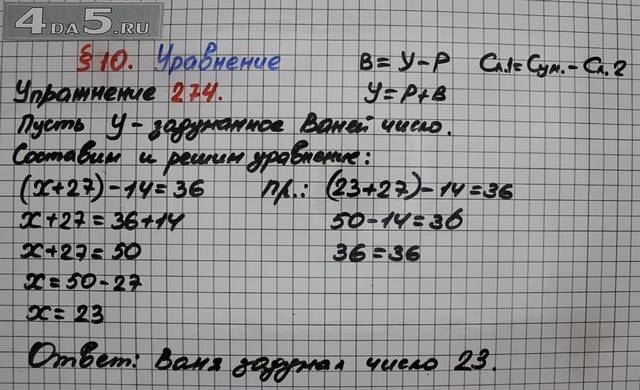 4DA5.RU
§ 10. Уравнение
В = У - Р Сл.1 = Сум. - Сл. 2
Упражнение 274.
У = Р + В
Пусть У - задуманное Ваней число.
Составим и решим уравнение:
(х+27) - 14 = 36 пр.: (23+27) - 14 = 36
х + 27 = 36 + 14 50 - 14 = 36
х + 27 = 50 36 = 36
х = 50 - 27
х = 23
Ответ: Ваня задумал число 23.